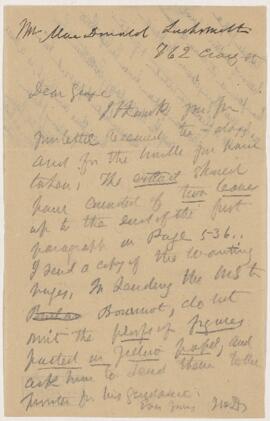 Mr. MacDonald
762 Craig St
Dear George
I thank you for
your letter received to-day
and for the trouble you have
taken. The extract should
have consisted of two leaves
up to the end of the first
paragraph on Page 536.
I send a copy of the wanting
pages. In sending the MSS
to Bournot, do not
omit the proofs of figures
pasted on yellow paper, and
ask him to send them to the
printer for his guidance.